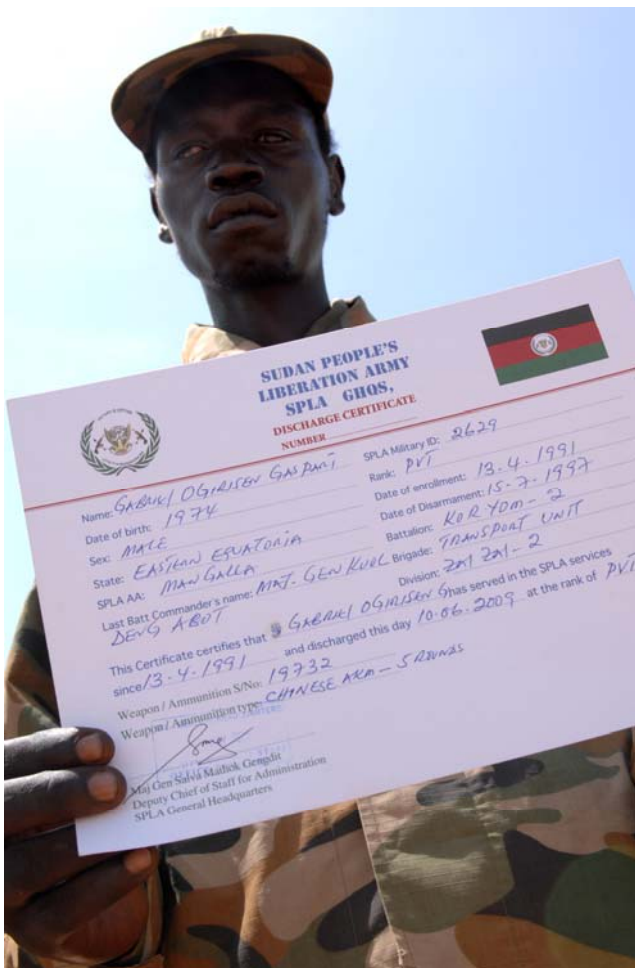 SUDAN PEOPLE'S
LIBERATION ARMY
SPLA GHQS,
DISCHARGE CERTIFICATE
NUMBER
Name: GABRIKI OGIRISEN GASPARI
Date of birth: 1974
Sex: MALE
State: EASTERN EQUATORIA
SPLA AA: MANGALLA
Last Batt Commander's name: MAJ. GEN KUOL
DENG ABOT
SPLA Military ID: 2629
Rank: PVT
Date of enrollment: 13.4.1991
Date of Disarmament: 15-7-1997
Battalion: KORYOM-2
Brigade: TRANSPORT UNIT
Division: ZAL ZAL-2
This Certificate certifies that GABRIKI OGIRISEN G has served in the SPLA services
since 13.4.1991 and discharged this day 10.06.2009 at the rank of PVT
Weapon / Ammunition S/No: 19732
Weapon / Ammunition type: CHINESE AKM - 5 ROUNDS
Maj Gen Salva Mathok Gengdit
Deputy Chief of Staff for Administration
SPLA General Headquarters